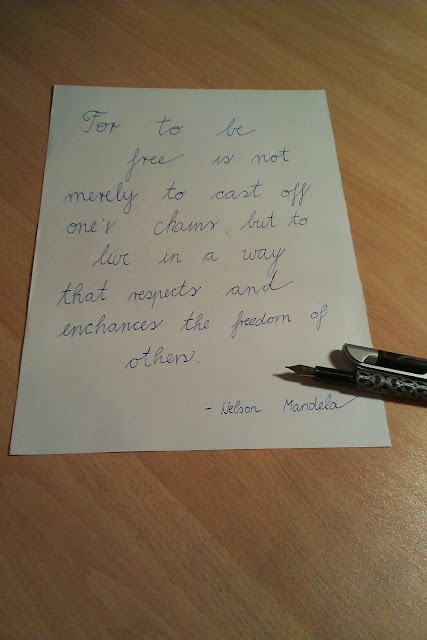 For to be
free is not
merely to cast off
one's chains, but to
live in a way
that respects and
enchances the freedom of
others.
- Nelson Mandela